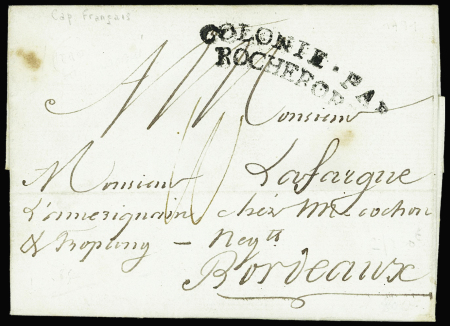 Cap Français
COLONIE · PAR
ROCHEFORT
Monsieur
Monsieur Lafargue
L'amerignain chéz M. cochon
& Tropany - Neg.ts
Bordeaux